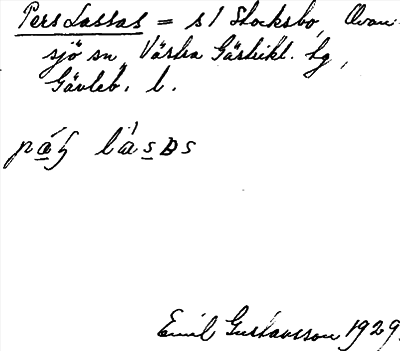 Pers Lassas = s/ Stocksbo, Ovan-
sjö sn, Västra Gästrikl. hg,
Gävleb. l.
Emil Gustavsson 1929.